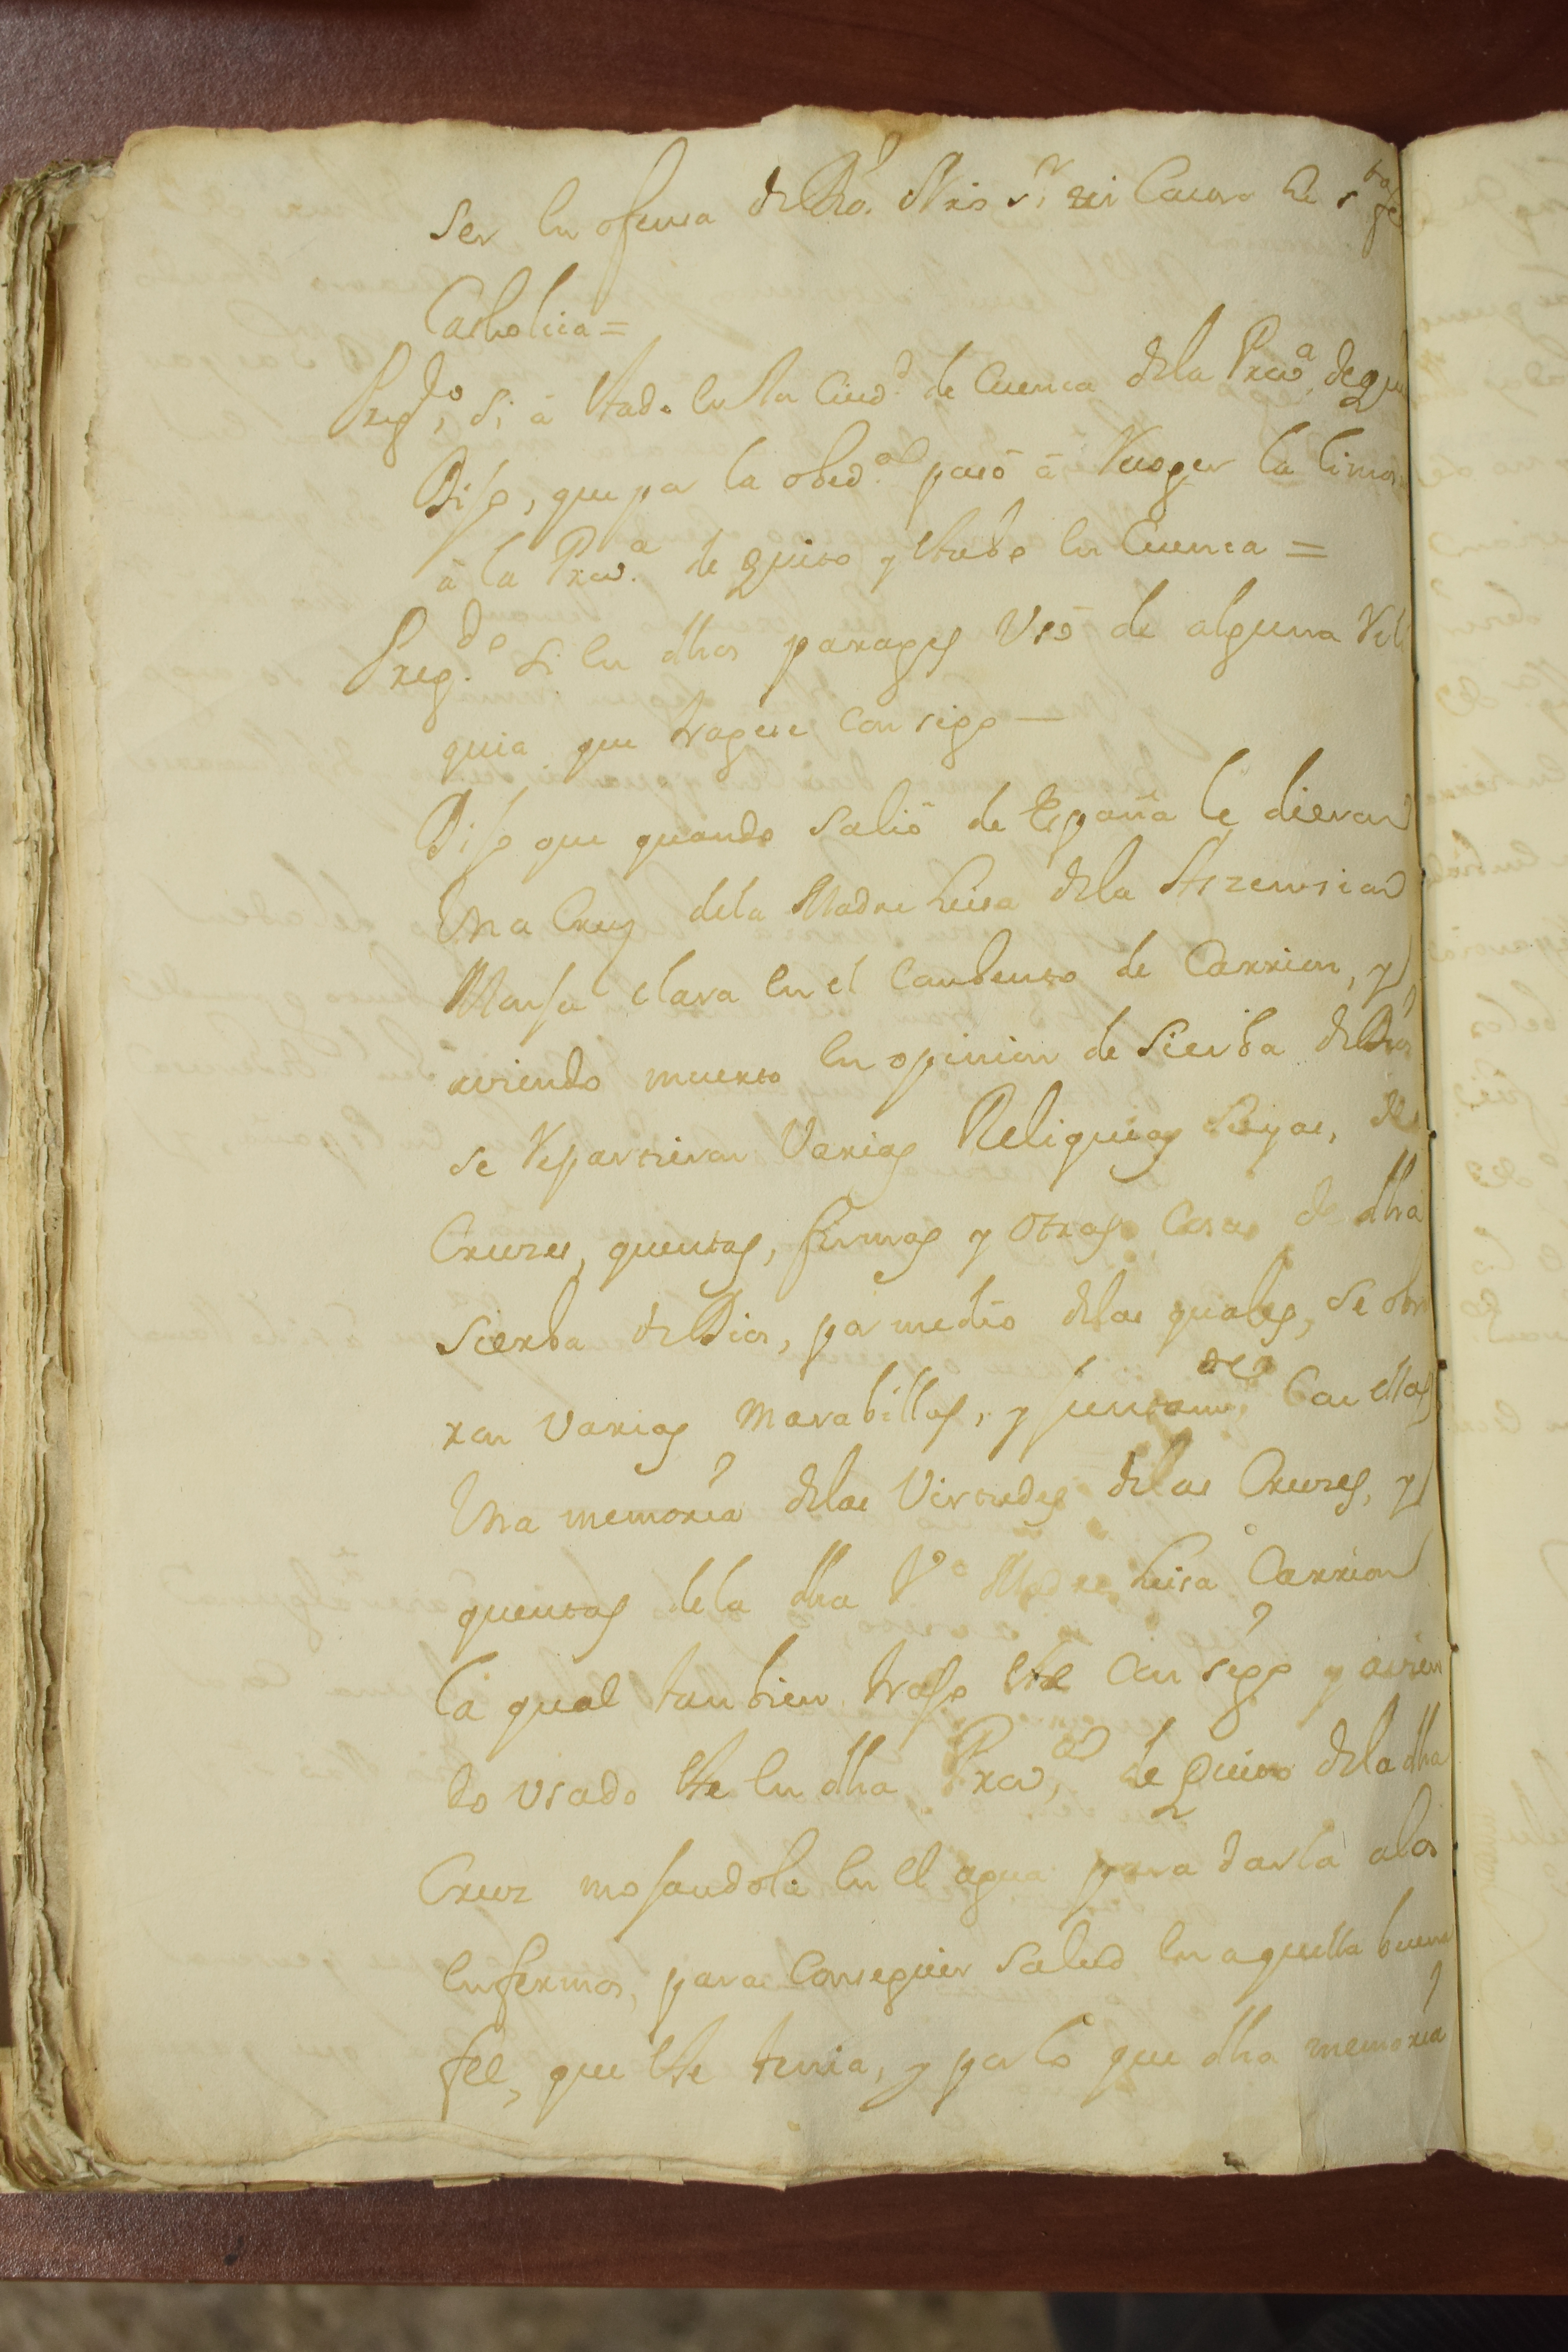 ser en ofensa de Dio.ˢ Nrō S.ʳ ni Contra la s.ᵗᵃ fe
Catholica =
Preg.ᵈᵒ, si á estado en la Ciud.ᵈ de Cuenca dela Prov.ᵃ de qui
Dijo, que por la obed.ᵃ pasó á Recoger la limos
á la Prov.ᵃ de Quito y estubo en Cuenca =
Preg.ᵈᵒ si en dhos parages Usó de alguna Reli
quia que tragese consigo —
Dijo que quando salió de España le dieron
Una Cruz dela Madre Luisa dela Aszension
Monja clara en el Conbento de Carrion, y
aviendo muerto en opinion de Sierba de Dios
se Repartieron Varias Reliquias Suyas, de
Cruzes, quentas, firmas y otras Cosas de dha
Sierba de Dios, por medio delas quales, se obra
ron Varias Marabillas, y juntam.ᵗᵉ Con ellas
Una memoria delas Virtudes delas Cruzes, y
quentas dela dha V.ᵉ Madre Luisa Carrion
la qual tanbien trajo este Consigo y avien
do Usado este en dha Prov.ᵃ de Quito dela dha
Cruz mojandola en el agua para darla alos
enfermos, para Conseguir Salud en aquella buena
fee, que este tenia, y por lo que dha memoria